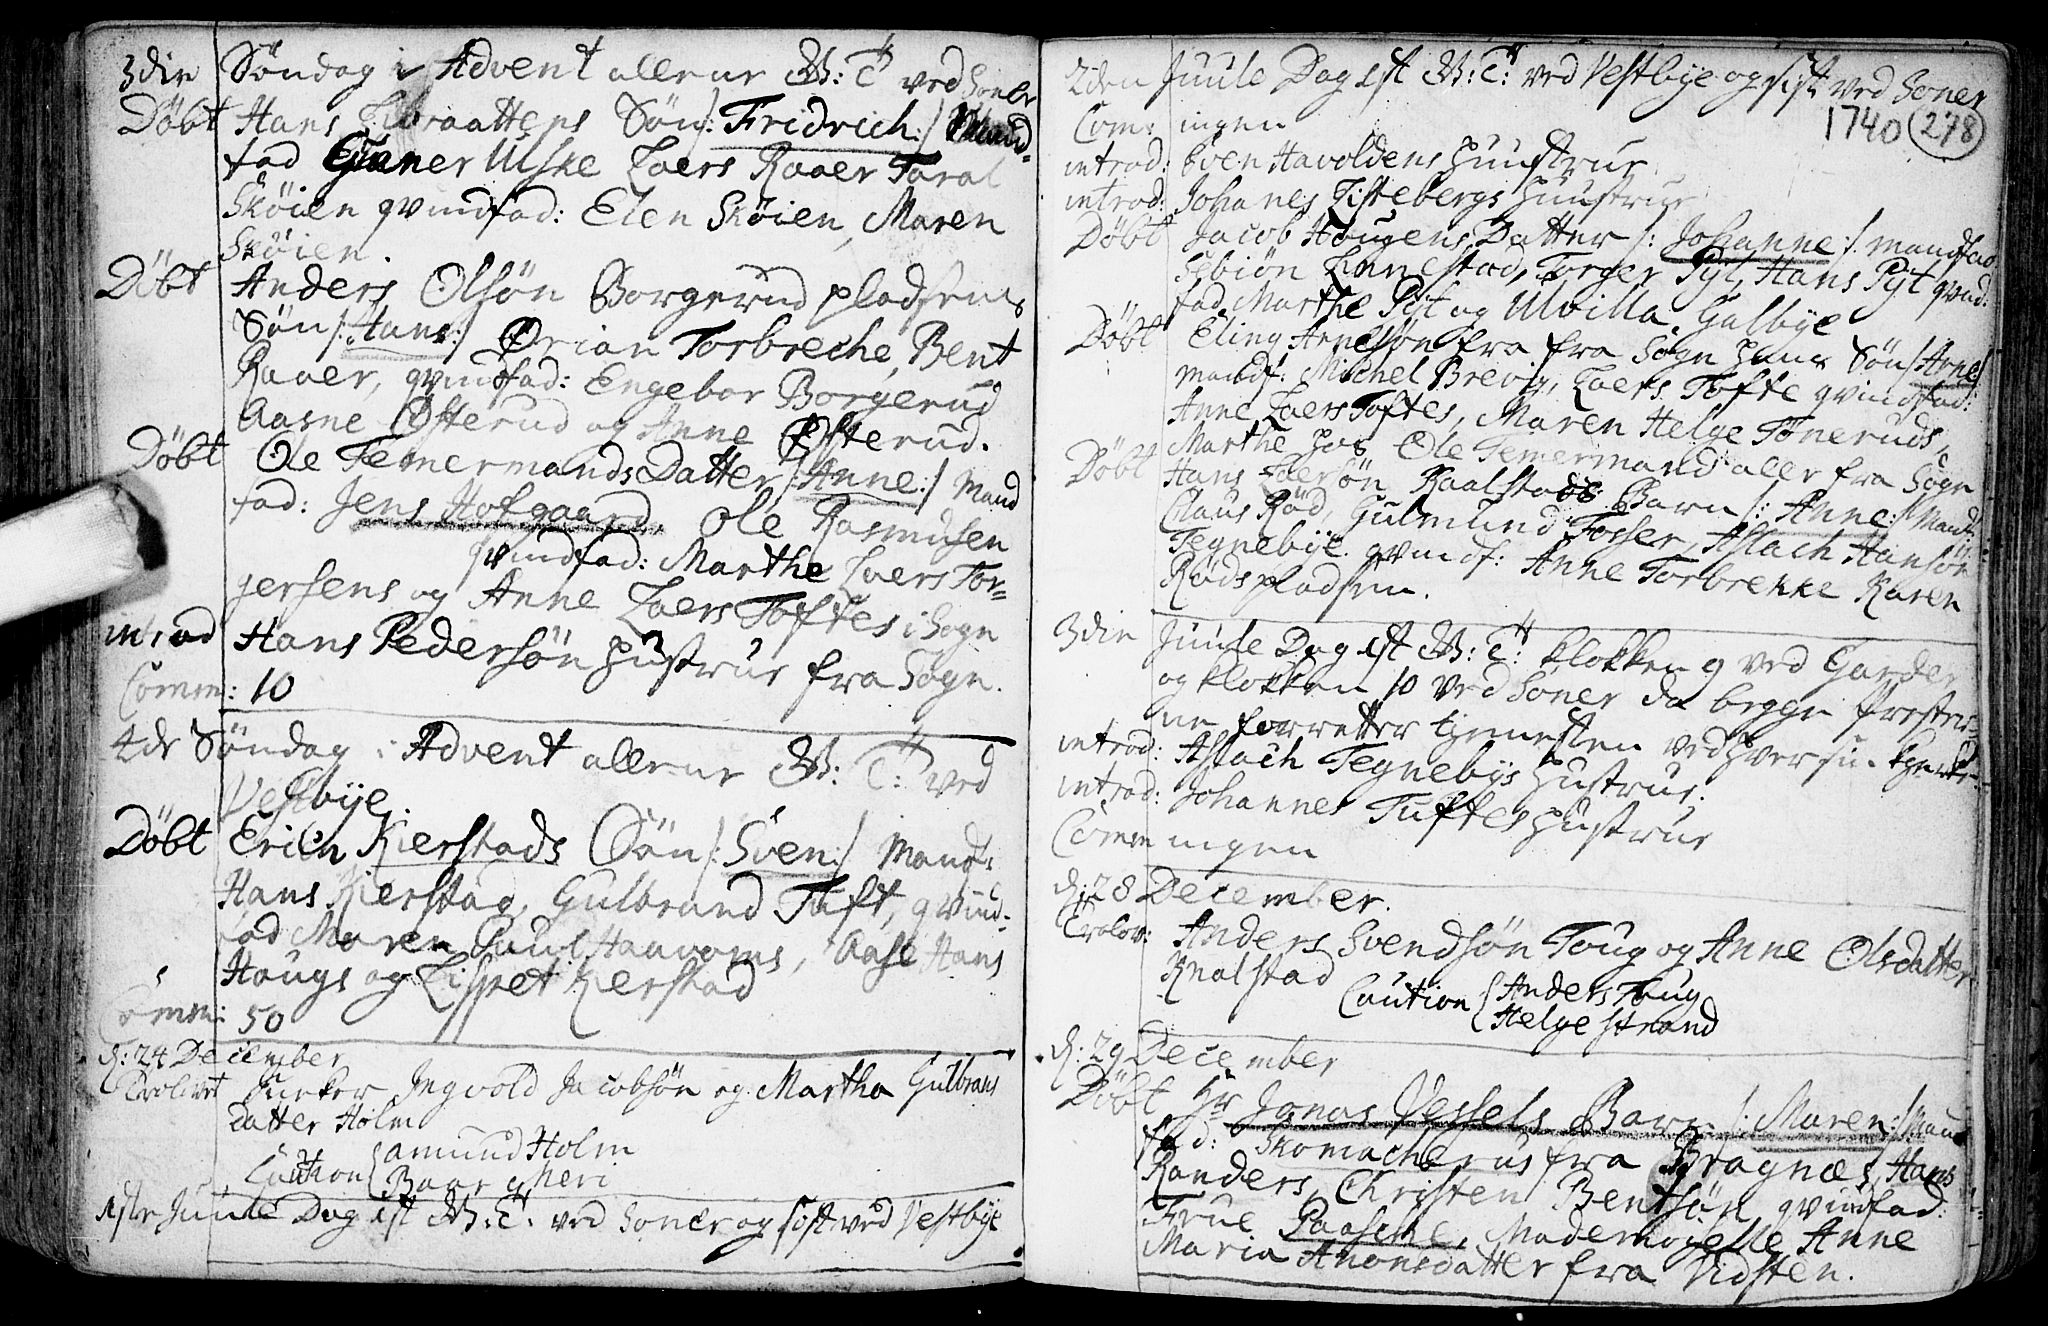 3die Søndag i Advent allene W: T: ved Soner
Døbt Hans Raattens Søn /: Fridrich :/ Mand-
fad Giner Ulske Laers Raaer Taral
Skøien qvindfad: Elen Skøien, Maren
Skøien.
Døbt Anders Olsøn Borgerud pladsens
Søn /: Hans :/ Ørian Torbreche, Bent
Raaer, qvindfad: Engebor Borgerud
Aasne Østerud og Anne Østerud.
Døbt Ole Temermands Datter /: Anne :/ Mand
fad: Jens Hofgaard, Ole Rasmusen
qvindfad: Marthe Laers Tor=
gersens og Anne Laers Toftes i Sogn
introd Hans Pedersøn Hustrue fra Sogn.
Comm: 10
4de Søndag i Advent allene W: T: ved
Vestbye.
Døbt Erich Kierstads Søn /: Sven :/ Mandf:
Hans Kierstad, Gulbrand Tuft, qvind-
fad Maren Paul Haavoms, Aase Hans
Haugs og Lisbet Kierstad
Comm: 50
d: 24 December
Trolovet Ingvold Jacobsøn og Martha Gulbrans
datter Holm
Caution { Amund Holm
Baar
1ste Juule Dag 1st W: T: ved Soner og sist ved Vestbye
2den Juule Dag 1st W: T: ved Vestbye og sist ved Soner
1740 278
Com: ingen
introd: Even Havoldens Huustrue
introd: Johanes Listebergs Huustrue
Døbt Jacob Hougens Datter /: Johanne :/ mandfad
Sebiøn Linnestad, Torger Pyt, Hans Pyt qvind:
fad, Marthe Pyt og Ulvilla Galbye
Døbt Eling Arnesøn fra fra Sogn Hans Søn /: Arne :/
mandf: Michel Brevig, Laers Tofte qvindfad:
Anne Laers Toftes, Maren Helge Tøneruds,
Marthe hos Ole Temermands alle fra Sogn
Døbt Hans Laersøn Raalstads Barn /: Anne :/ Mand:
Claus Rød, Gulmund Fosser, Aslach Hansøn
Tegnebye. qvindf: Anne Torbrekke Karen
Røds pladsen.
3die Juule Dag 1st W: T: klokken 9 ved Garder
og klokken 10 ved Soner da begge Prester-
ne forretter tjenesten ved hver sin kirke
introd: Aslach Tegnebys Hustrue.
introd: Johannes Tuftes Hustrue
Comm ingen
d: 28 December.
Trolov: Anders Svendsøn Toug og Anne Olsdatter
Knalstad
Caution { Anders Toug
Helge Strand
d: 29 December
Døbt Hr Jonas Vessels Barn /: Maren :/ Mand
fad: Skomacherus fra Bragnæs, Hans
Randers, Christen Bentsøn, qvindfad:
Frue Paasche, Mademoyelle Anne
Maria Anonsdatter fra Vidsten.